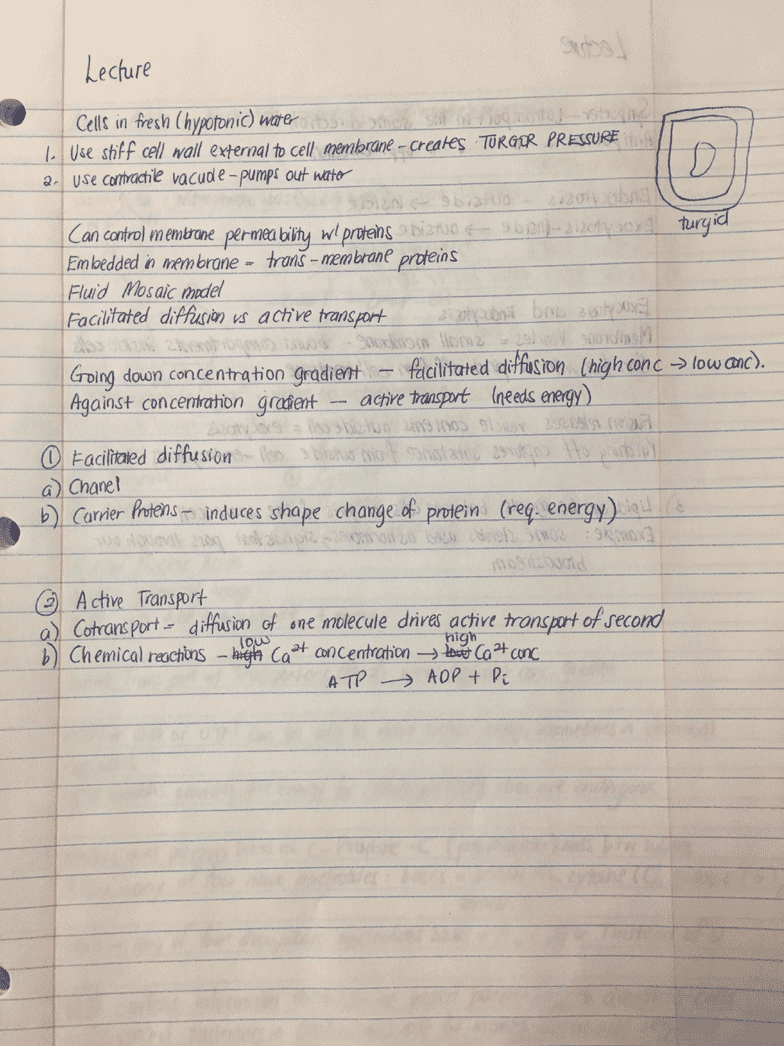 Lecture
Cells in fresh (hypotonic) water
1. Use stiff cell wall external to cell membrane - creates TURGOR PRESSURE
2. Use contractile vacuole - pumps out water
turgid
Can control membrane permeability w/ proteins
Embedded in membrane = trans-membrane proteins
Fluid Mosaic model
Facilitated diffusion vs active transport
Going down concentration gradient — facilitated diffusion (high conc → low conc).
Against concentration gradient — active transport (needs energy)
① Facilitated diffusion
a) Chanel
b) Carrier Proteins - induces shape change of protein (req. energy)
② Active Transport
a) Cotransport = diffusion of one molecule drives active transport of second
b) Chemical reactions - low Ca²⁺ concentration → high Ca²⁺ conc
ATP → ADP + Pi